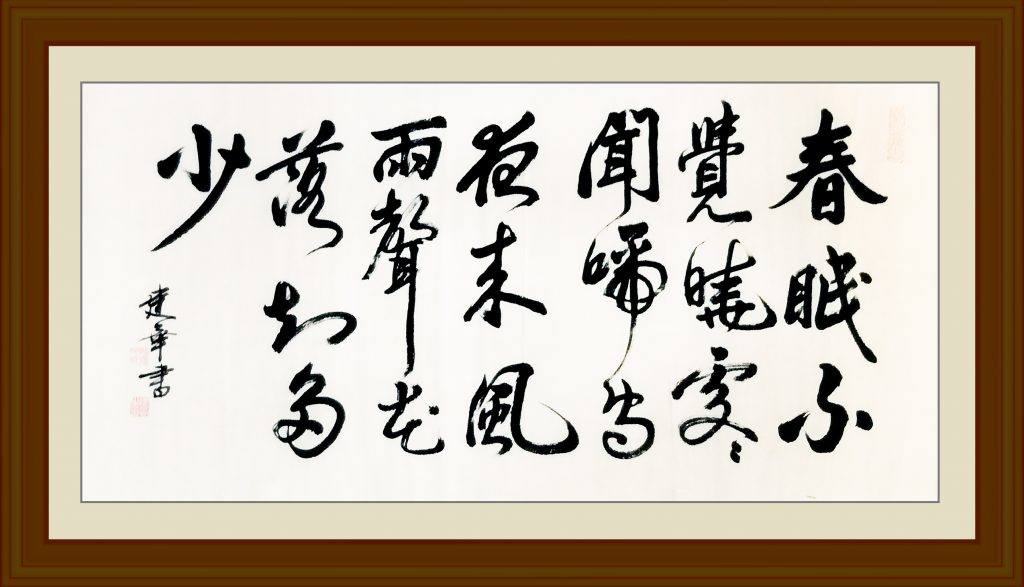 春眠不
覺曉處々
聞啼鳥
夜来風
雨聲花
落知多
少
建華書